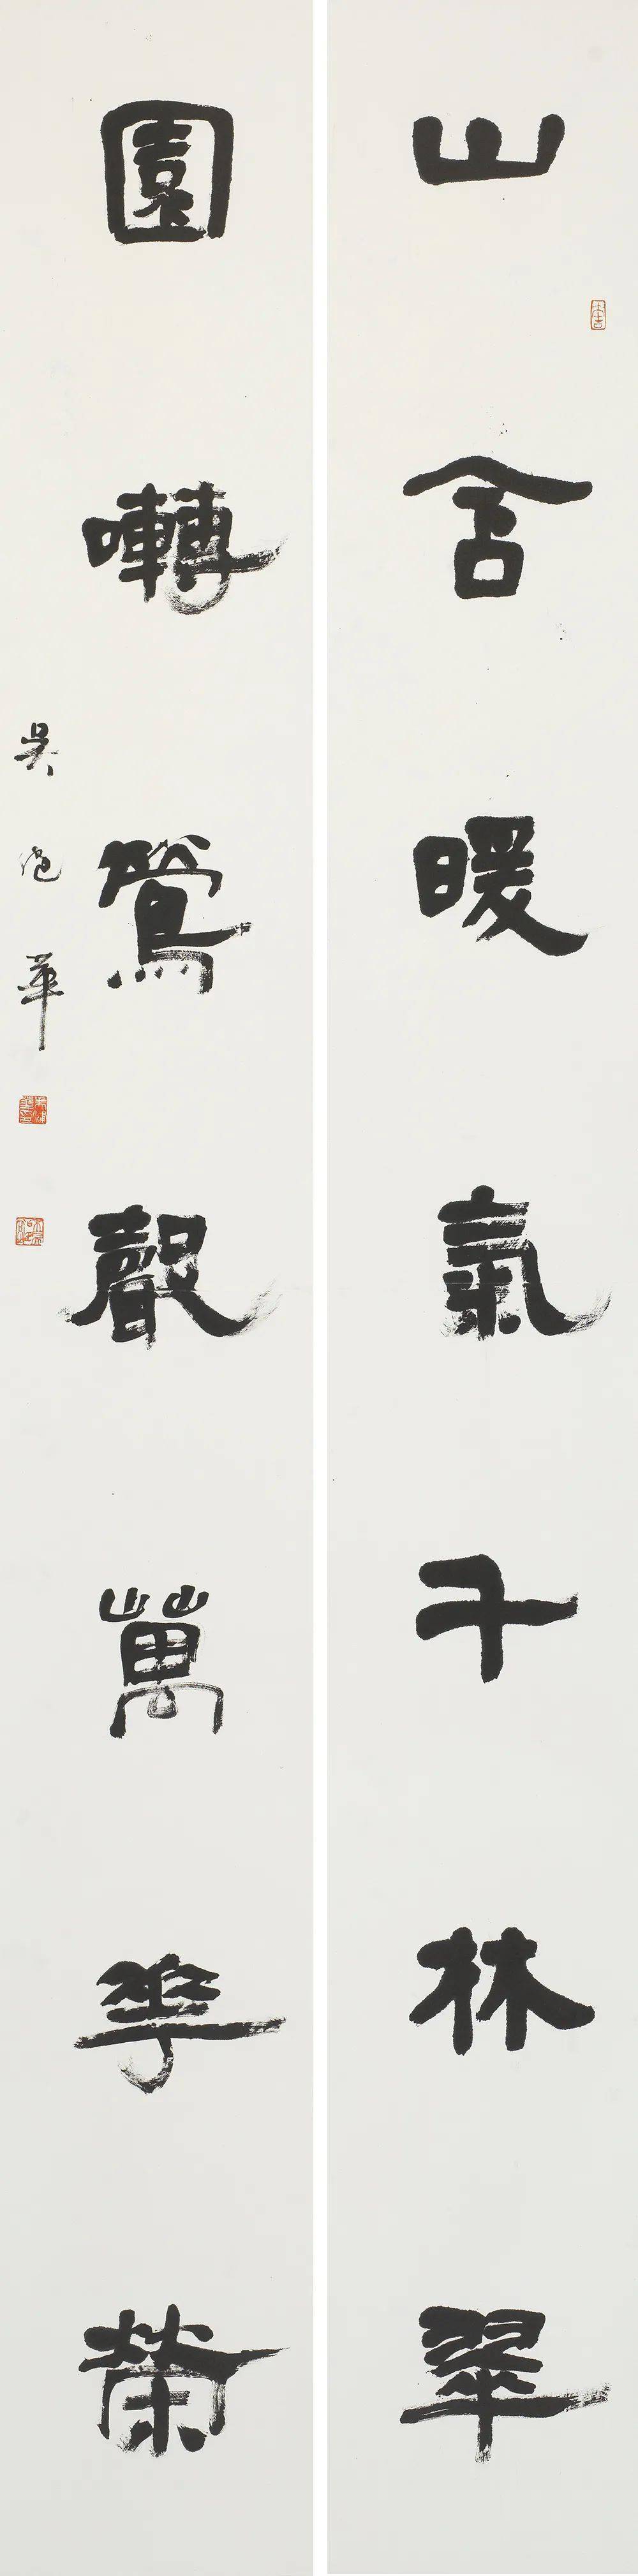 山含暖氣千林翠
園囀鶯聲萬華榮
吳 華